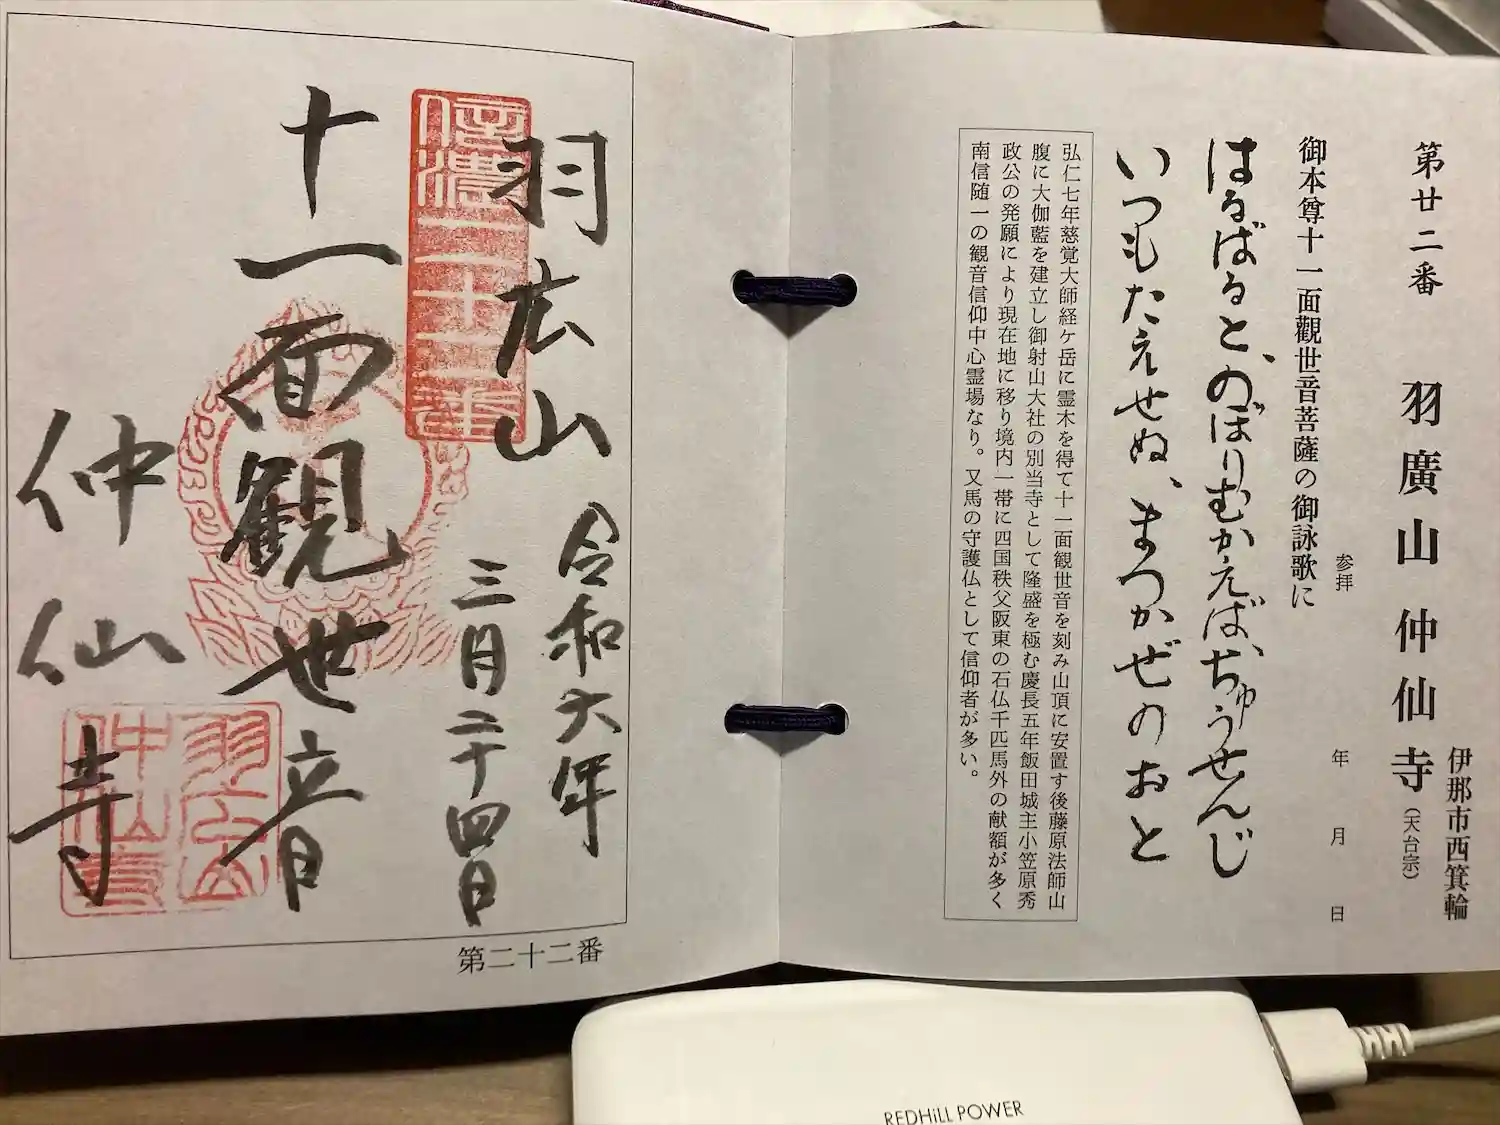 第廿二番　羽廣山仲仙寺（天台宗）
伊那市西箕輪
参拝　年　月　日
御本尊十一面觀世音菩薩の御詠歌に
はるばると、のぼりむかえば、ぢゅうせんじ
いつもたえせぬ、まつかぜのおと
弘仁七年慈覚大師経ケ岳に霊木を得て十一面観世音を刻み山頂に安置す後藤原法師山
腹に大伽藍を建立し御射山大社の別当寺として隆盛を極む慶長五年飯田城主小笠原秀
政公の発願により現在地に移り境内一帯に四国秩父阪東の石仏千匹馬外の献額が多く
南信随一の観音信仰中心霊場なり。又馬の守護仏として信仰者が多い。
羽広山
信濃二十二番
令和六年
三月二十四日
十一面観世音
仲仙寺
羽広山
仲仙寺
第二十二番
REDHiLL POWER